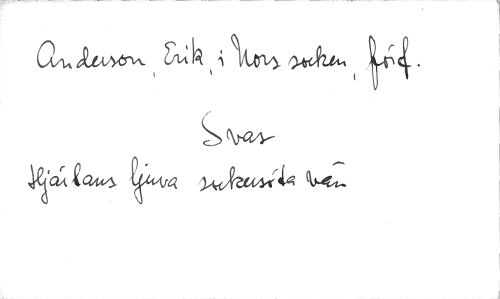 Anderson, Erik, i Nors socken, förf.
Svar
Hjärtans ljuva sockersöta vän